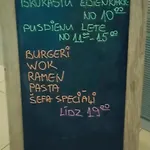 BROKASTU ĒDIENKARTE
NO 10⁰⁰
PUSDIENU LETE
NO 11⁰⁰-15⁰⁰
BURGERI
WOK
RAMEN
PASTA
ŠEFA SPECIĀLI
LĪDZ 19⁰⁰